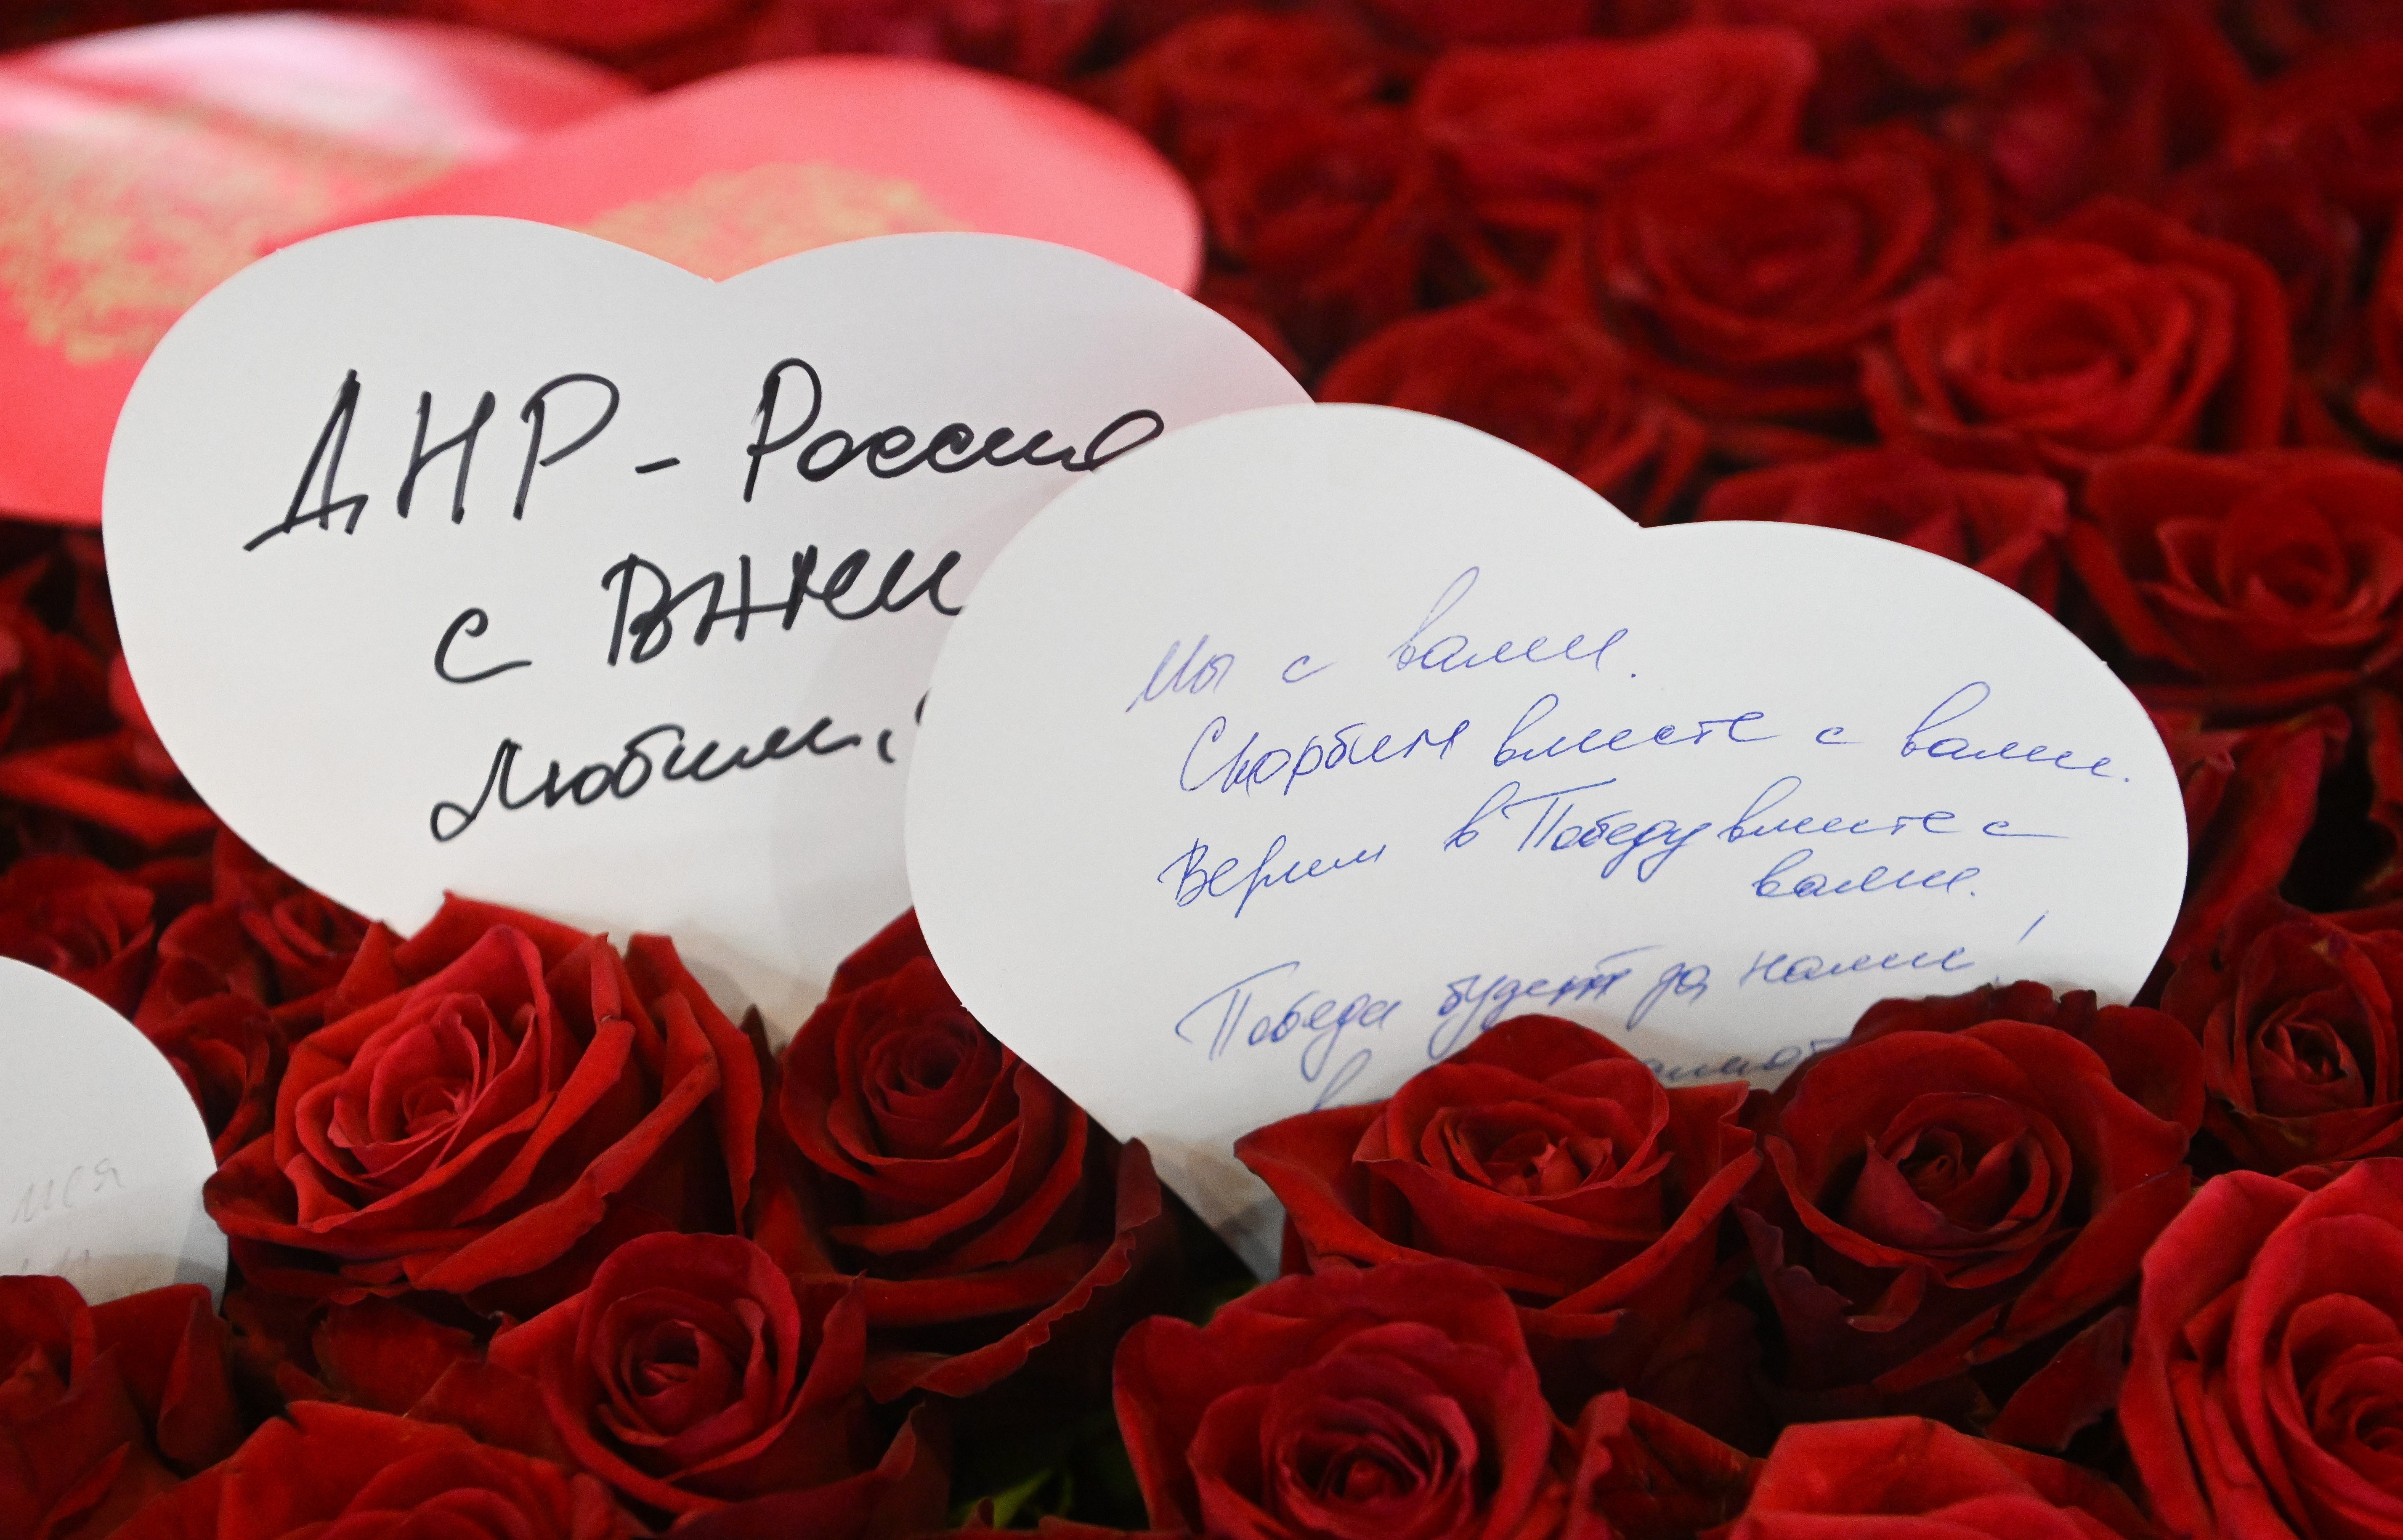 ДНР - Россия
с Вами
Любим!
Мы с вами.
Скорбим вместе с вами.
Верим в Победу вместе с
вами.
Победа будет за нами!
мся